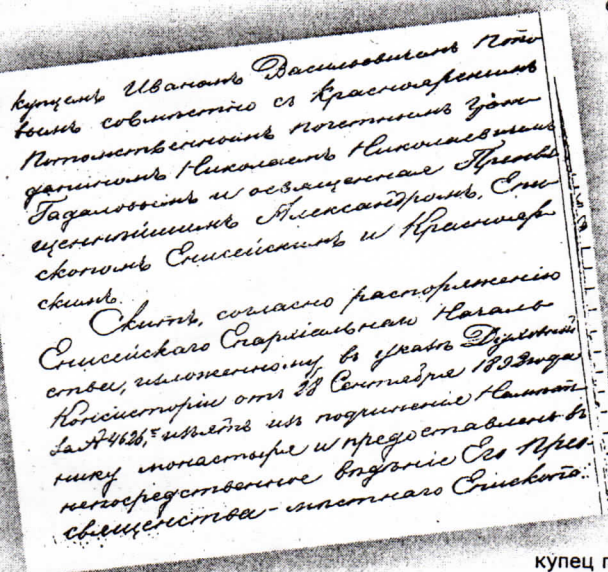 купцемъ Иваномъ Васильевичемъ
вымъ совмѣстно съ Красноярскимъ
потомственнымъ почетнымъ граж-
даниномъ Николаемъ Николаевичемъ
Гадаловымъ и освященная Преосвя-
щеннѣйшимъ Александромъ, Епи-
скопомъ Енисейскимъ и Краснояр-
скимъ.
Скитъ, согласно распоряженію
Енисейскаго Епархіальнаго Началь-
ства, изложенному въ указѣ Духовной
Консисторіи отъ 28 Сентября года
за № 4626, изъятъ изъ подчиненія
нику монастыря и предоставленъ въ
непосредственное вѣдѣніе Его Прео-
священства - мѣстнаго Епископа.
купец